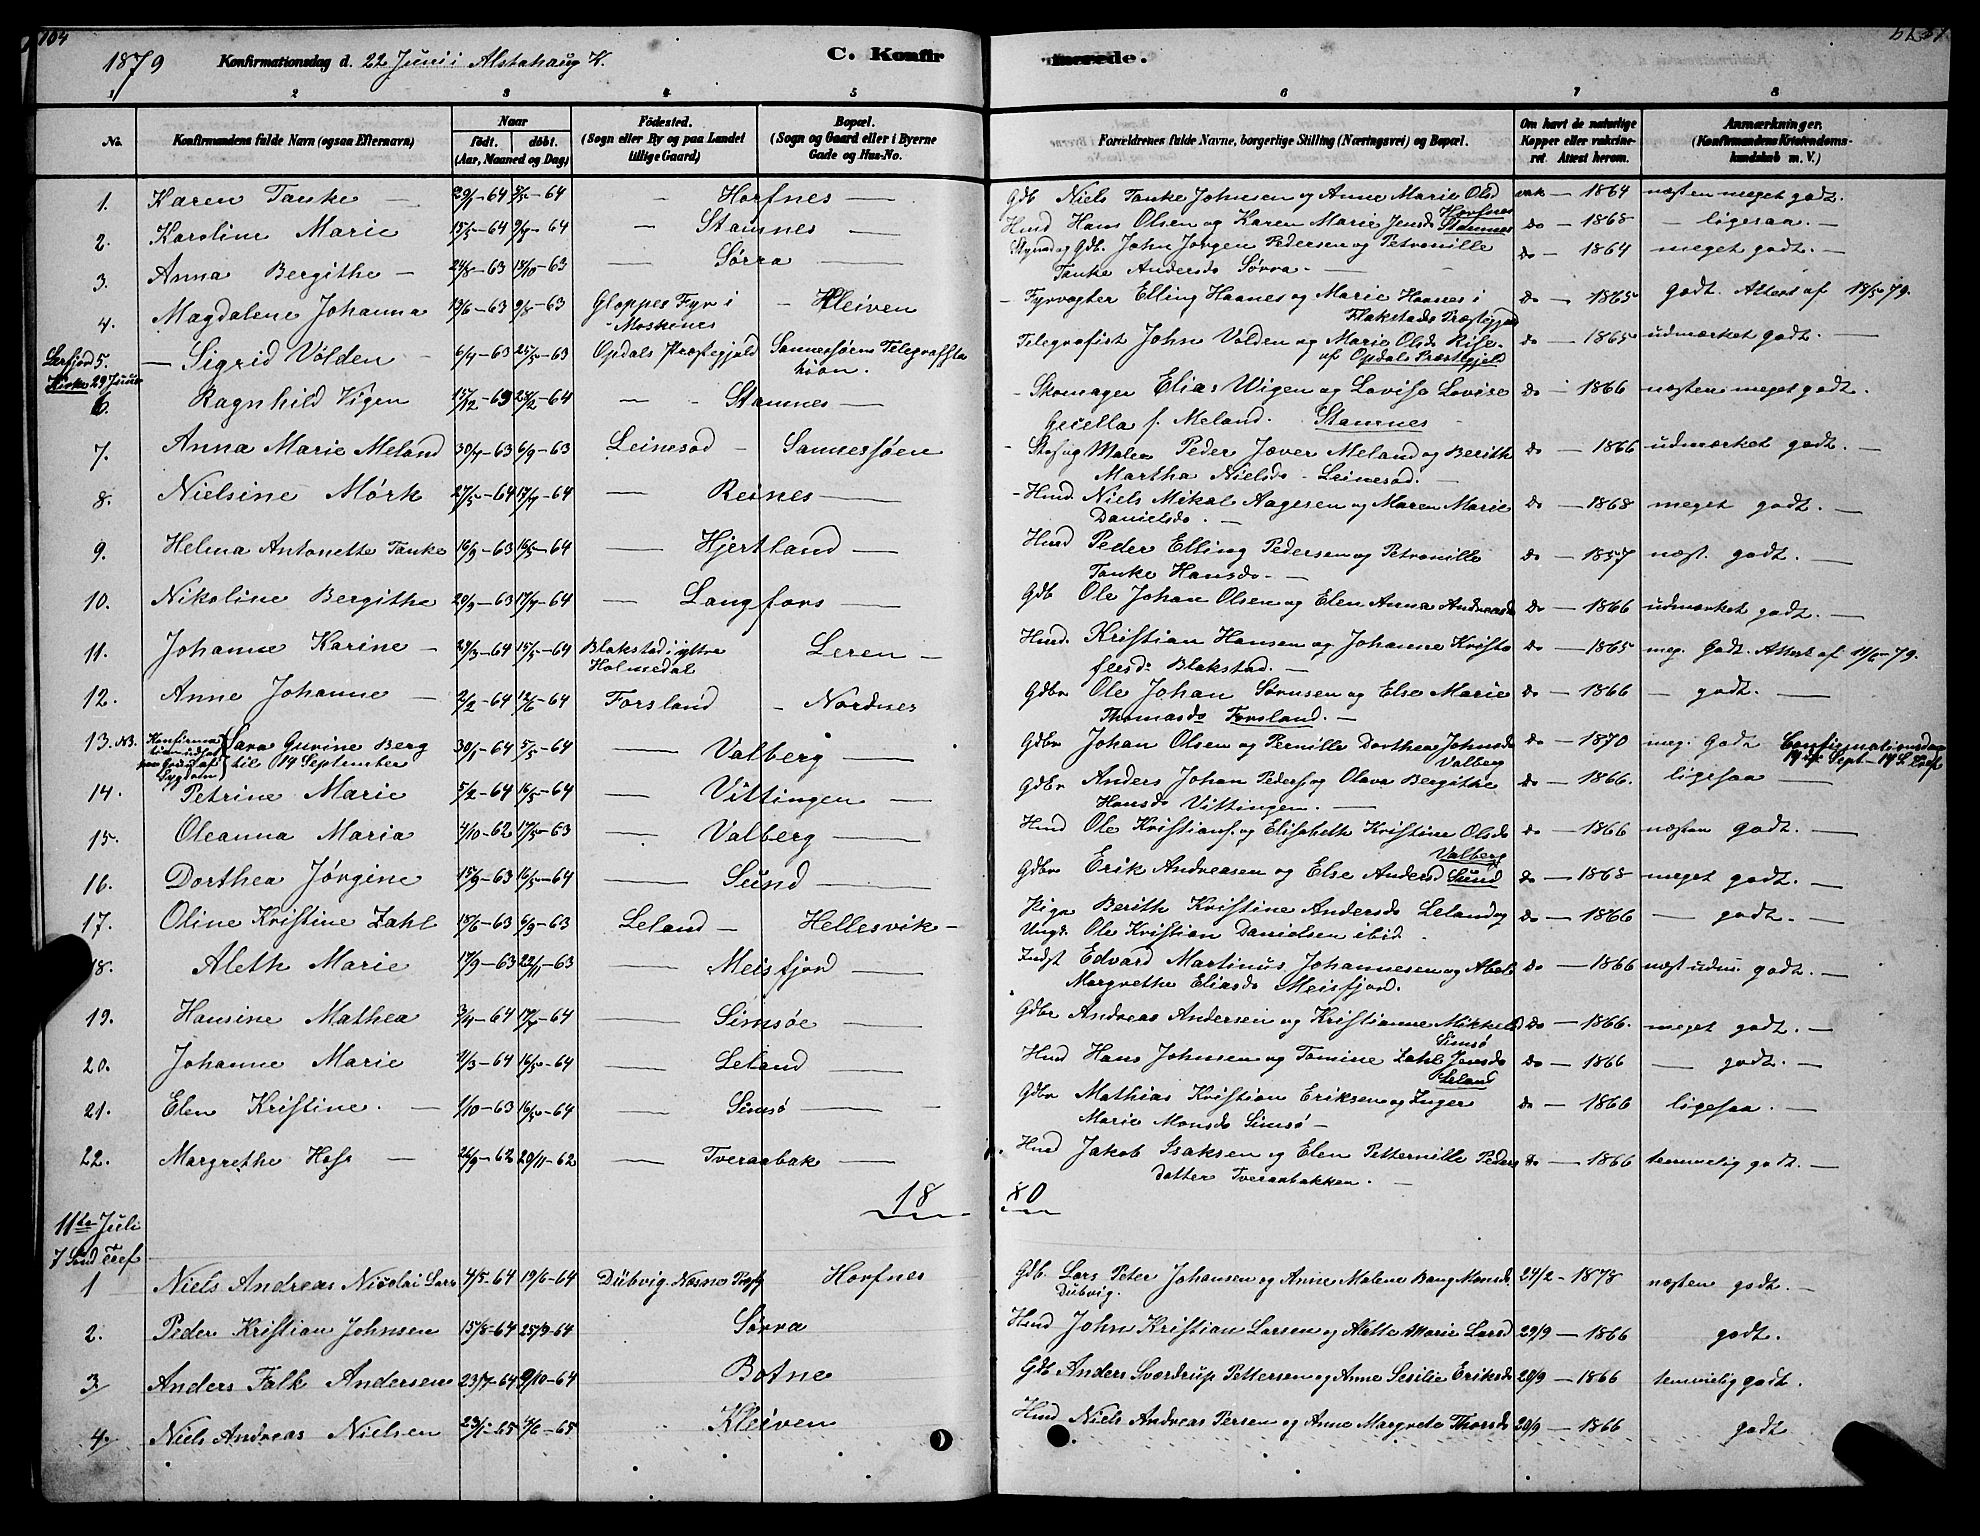 104
1879 Konfirmationsdag d. 22 Juni i Alstahaug K. C. Konfir
merede.
1 2 3 4 5 6 7 8
No. Konfirmandens fulde Navn (ogsaa Efternavn) Naar født. døbt. (Aar, Maaned og Dag) Fødested. (Sogn eller By og paa Landet tillige Gaard) Bopæl. (Sogn og Gaard eller i Byerne Gade og Hus-No. Forældrenes fulde Navne, borgerlige Stilling (Næringsvei) og Bopæl. Om havt de naturlige Kopper eller vakcineret. Attest herom. Anmærkninger. (Konfirmandens Kristendomskundskab m. V.)
1. Karen Tanke — -64 -64 - Horfnes — Gdb Niels Tanke Johnsen og Anne Marie Olsd Horfnes vak — 1864 næsten meget godt.
2. Karoline Marie 15/5-64 -64 — Stamnes — Hmd Hans Olsen og Karen Marie Jensd Stamnes do — 1868 — ligesaa. —
3. Anna Bergithe — 24/8-63 18/10-63 — Sørra — og Gdb. John Jørgen Pedersen og Petronille do — 1864 meget godt. —
Tanke Andersd. Sørra. —
4. Magdalene Johanna 13/6-63 9/8-63 Gloppes Fyr i Moskenes - Kleiven - Fyrvogter Elling Haanes og Marie Haanes i do — 1865 Godt. Attest af 18/5 79.
Flakstads Præstegjeld
5. — Sigrid Volden 6/4-63 25/5-63 Opdals Præstegjeld Sannessøens Telegrafstation. Telegrafist John Volden og Marie Olsd. Rise do — 1865 udmærket godt. —
kirke 29 Juni af Opdals Præstegjeld
6. Ragnhild Vigen 17/12-63 28/2-64 — Stamnes — - Skomager Elias Wigen og Lovisa Lovise do — 1866 næsten meget godt.
f. Meland. Stamnes
7. Anna Marie Meland 30/4-63 6/9-63 Leinesod - Sannessøen - og Maler Peder Jæver Meland og Berith do — 1866 udmærket godt. —
Martha Nielsd. Leinesod. —
8. Nielsine Mørk 27/5-64 17/7-64 — Reines — - Hmd. Niels Mikal Aagesen og Maren Marie do — 1868 meget godt. —
Danielsd. —
9. Helma Antonette Tanke 16/9-63 16/5-64 — Hjertland — Hmd Peder Elling Pedersen og Petronille do — 1857 næst. godt. —
Tanke Hansd. —
10. Nikoline Bergithe 20/9-63 17/7-64 — Langfors — Gdb Ole Johan Olsen og Elen Anna Andreasd do — 1866 udmærket godt. —
11. Johanne Karine — 24/3-64 15/5-64 Blakstad i yttre Holmedal Leren — Hmd. Kristian Hansen og Johanne Kristo do — 1865 meg. Godt. Attest af 11/6-79.
fersd. Blakstad. —
12. Anne Johanne — 2/2-64 12/6-64 Forsland - Nordnes Gdbr Ole Johan Sørensen og Else Marie do — 1866 — godt. —
Thomasd. Forsland. —
13. NB. Konfirmationen udsat paa Grund af Sygdom til 14 September Sara Gurine Berg 30/1-64 5/5-64 — Valberg — Gdbr Johan Olsen og Pernille Dorthea Johnsd. Valberg do — 1870 meg. Godt Confirmationsdag 14de Sept — 14 S. Tref
14. Petrine Marie 5/2-64 16/5-64 — Vittingen — Gdbr Anders Johan Peders. og Olava Bergithe do — 1866. ligesaa —
Hansd. Vittingen. —
15. Oleanna Maria 4/10-62 17/5-63 — Valberg — Hmd Ole Kristians. og Elisabeth Kristine Olsd. Valberg do — 1866 næsten godt. —
16. Dorthea Jørgine 15/9-63 16/5-64 — Sund — Gdbr Erik Andreasen og Else Andersd Sund do — 1868 meget godt. —
17. Oline Kristine Zahl 18/6-63 6/9-63 Leland — Hellesvik — Pige Berith Kristine Andersd. Leland og do — 1866 — godt. —
Ungk. Ole Kristian Danielsen ibid.
18. Aleth Marie 17/9-63 22/11-63 — Meisfjord — Indst Edvard Martinus Johannesen og Abel do — 1866 næst udm. godt. —
Margrethe Eliasd. Meisfjord.
19. Hansine Mathea 3/4-64 17/7-64 — Simsøe — Gdbr Andreas Andersen og Kristianne Mikkelsd. Simsø do — 1866. meget godt. —
20. Johanne Marie 4/3-64 16/5-64 — Leland — Hmd Hans Johnsen og Tomine Zahl Jensd. Leland do — 1866 — godt. —
21. Elen Kristine. — 1/10-63 16/5-64 — Simsø — Gdbr Mathias Kristian Eriksen og Inger do — 1866 ligesaa. —
Marie Monsd. Simsø —
22. Margrethe Hoff — 26/9-62 20/11-62 — Tveraabak — Hmd Jakob Isaksen og Elen Petternille Peders do — 1866 temmelig godt. —
datter Tveraabakken. —
18 80
11te Juli
7 Sønd Tref
1 Niels Andreas Nicolai Lars 4/5-64 19/6-64 Dübvig. Horfnes Gdb. Lars Peter Johansen og Anne Malene Bang Monsd. Dübvig. 24/2-1878 næsten godt. —
2. Peder Kristian Johnsen 15/8-64 25/9-64 Sørra Hmd John Kristian Larsen og Aletta Marie Larsd 29/9 — 1866 godt.
3 Anders Falk Andersen 23/7-64 9/10-64 Botne Gdb Anders Sverdrup Pettersen og Anne Sesilie Eriksd. 20/9 — 1866 temmelig godt.
4. Niels Andreas Nielsen 23/1-65 4/6-65 Kleiven Hmd Niels Andreas Persen og Anne Margrete Thorsd. 20/9 — 1866 godt